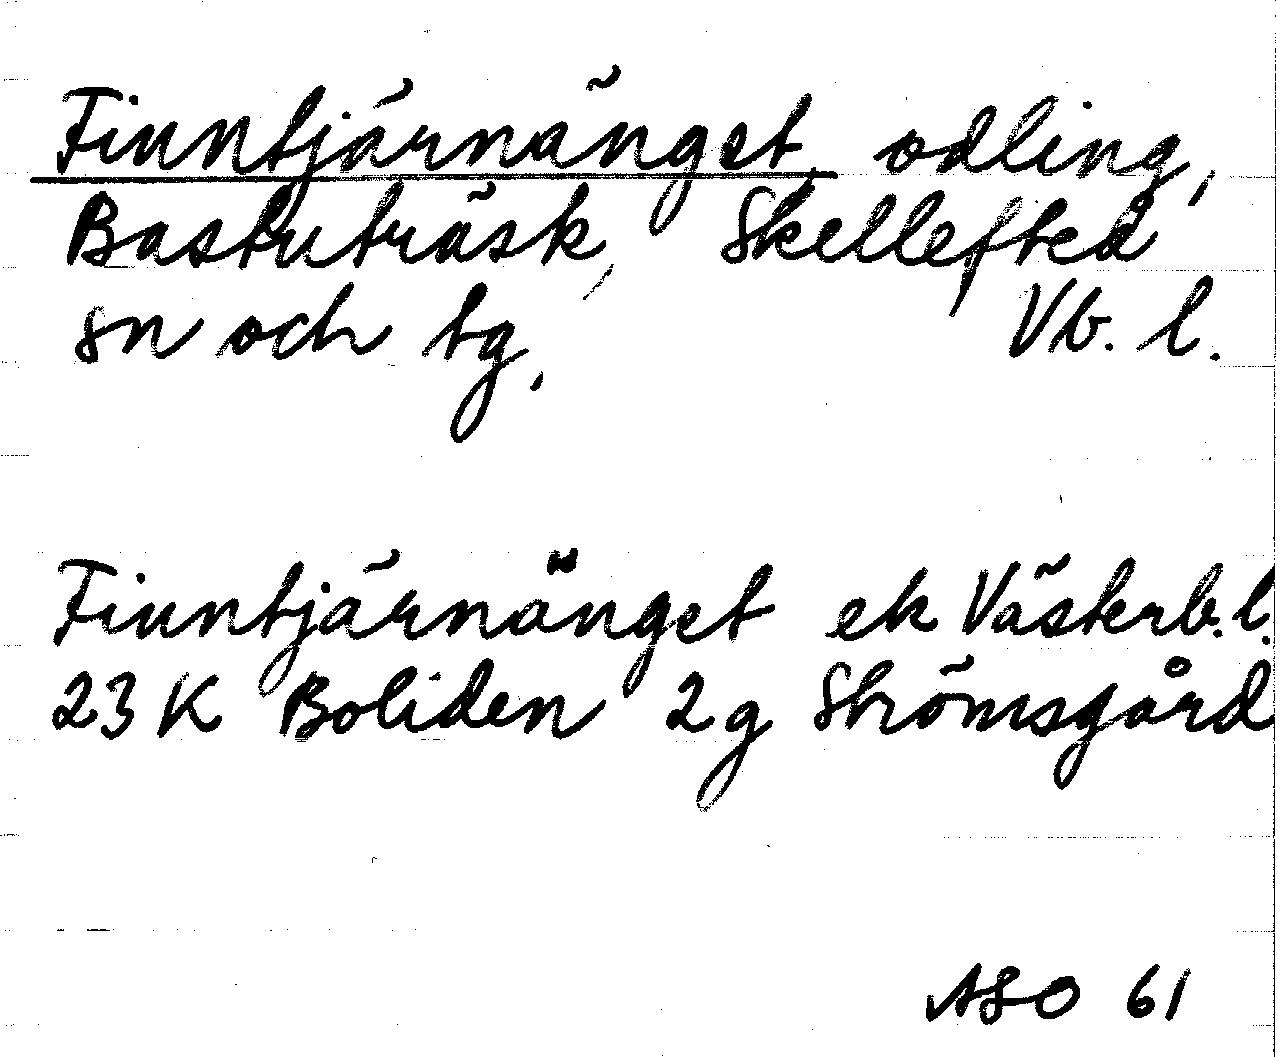 Finntjärnänget, odling,
Bastuträsk, Skellefteå
sn och tg, Vb. l.
Finntjärnänget ek Västerb. l.
23 K Boliden 2g Strömsgård
ASO 61